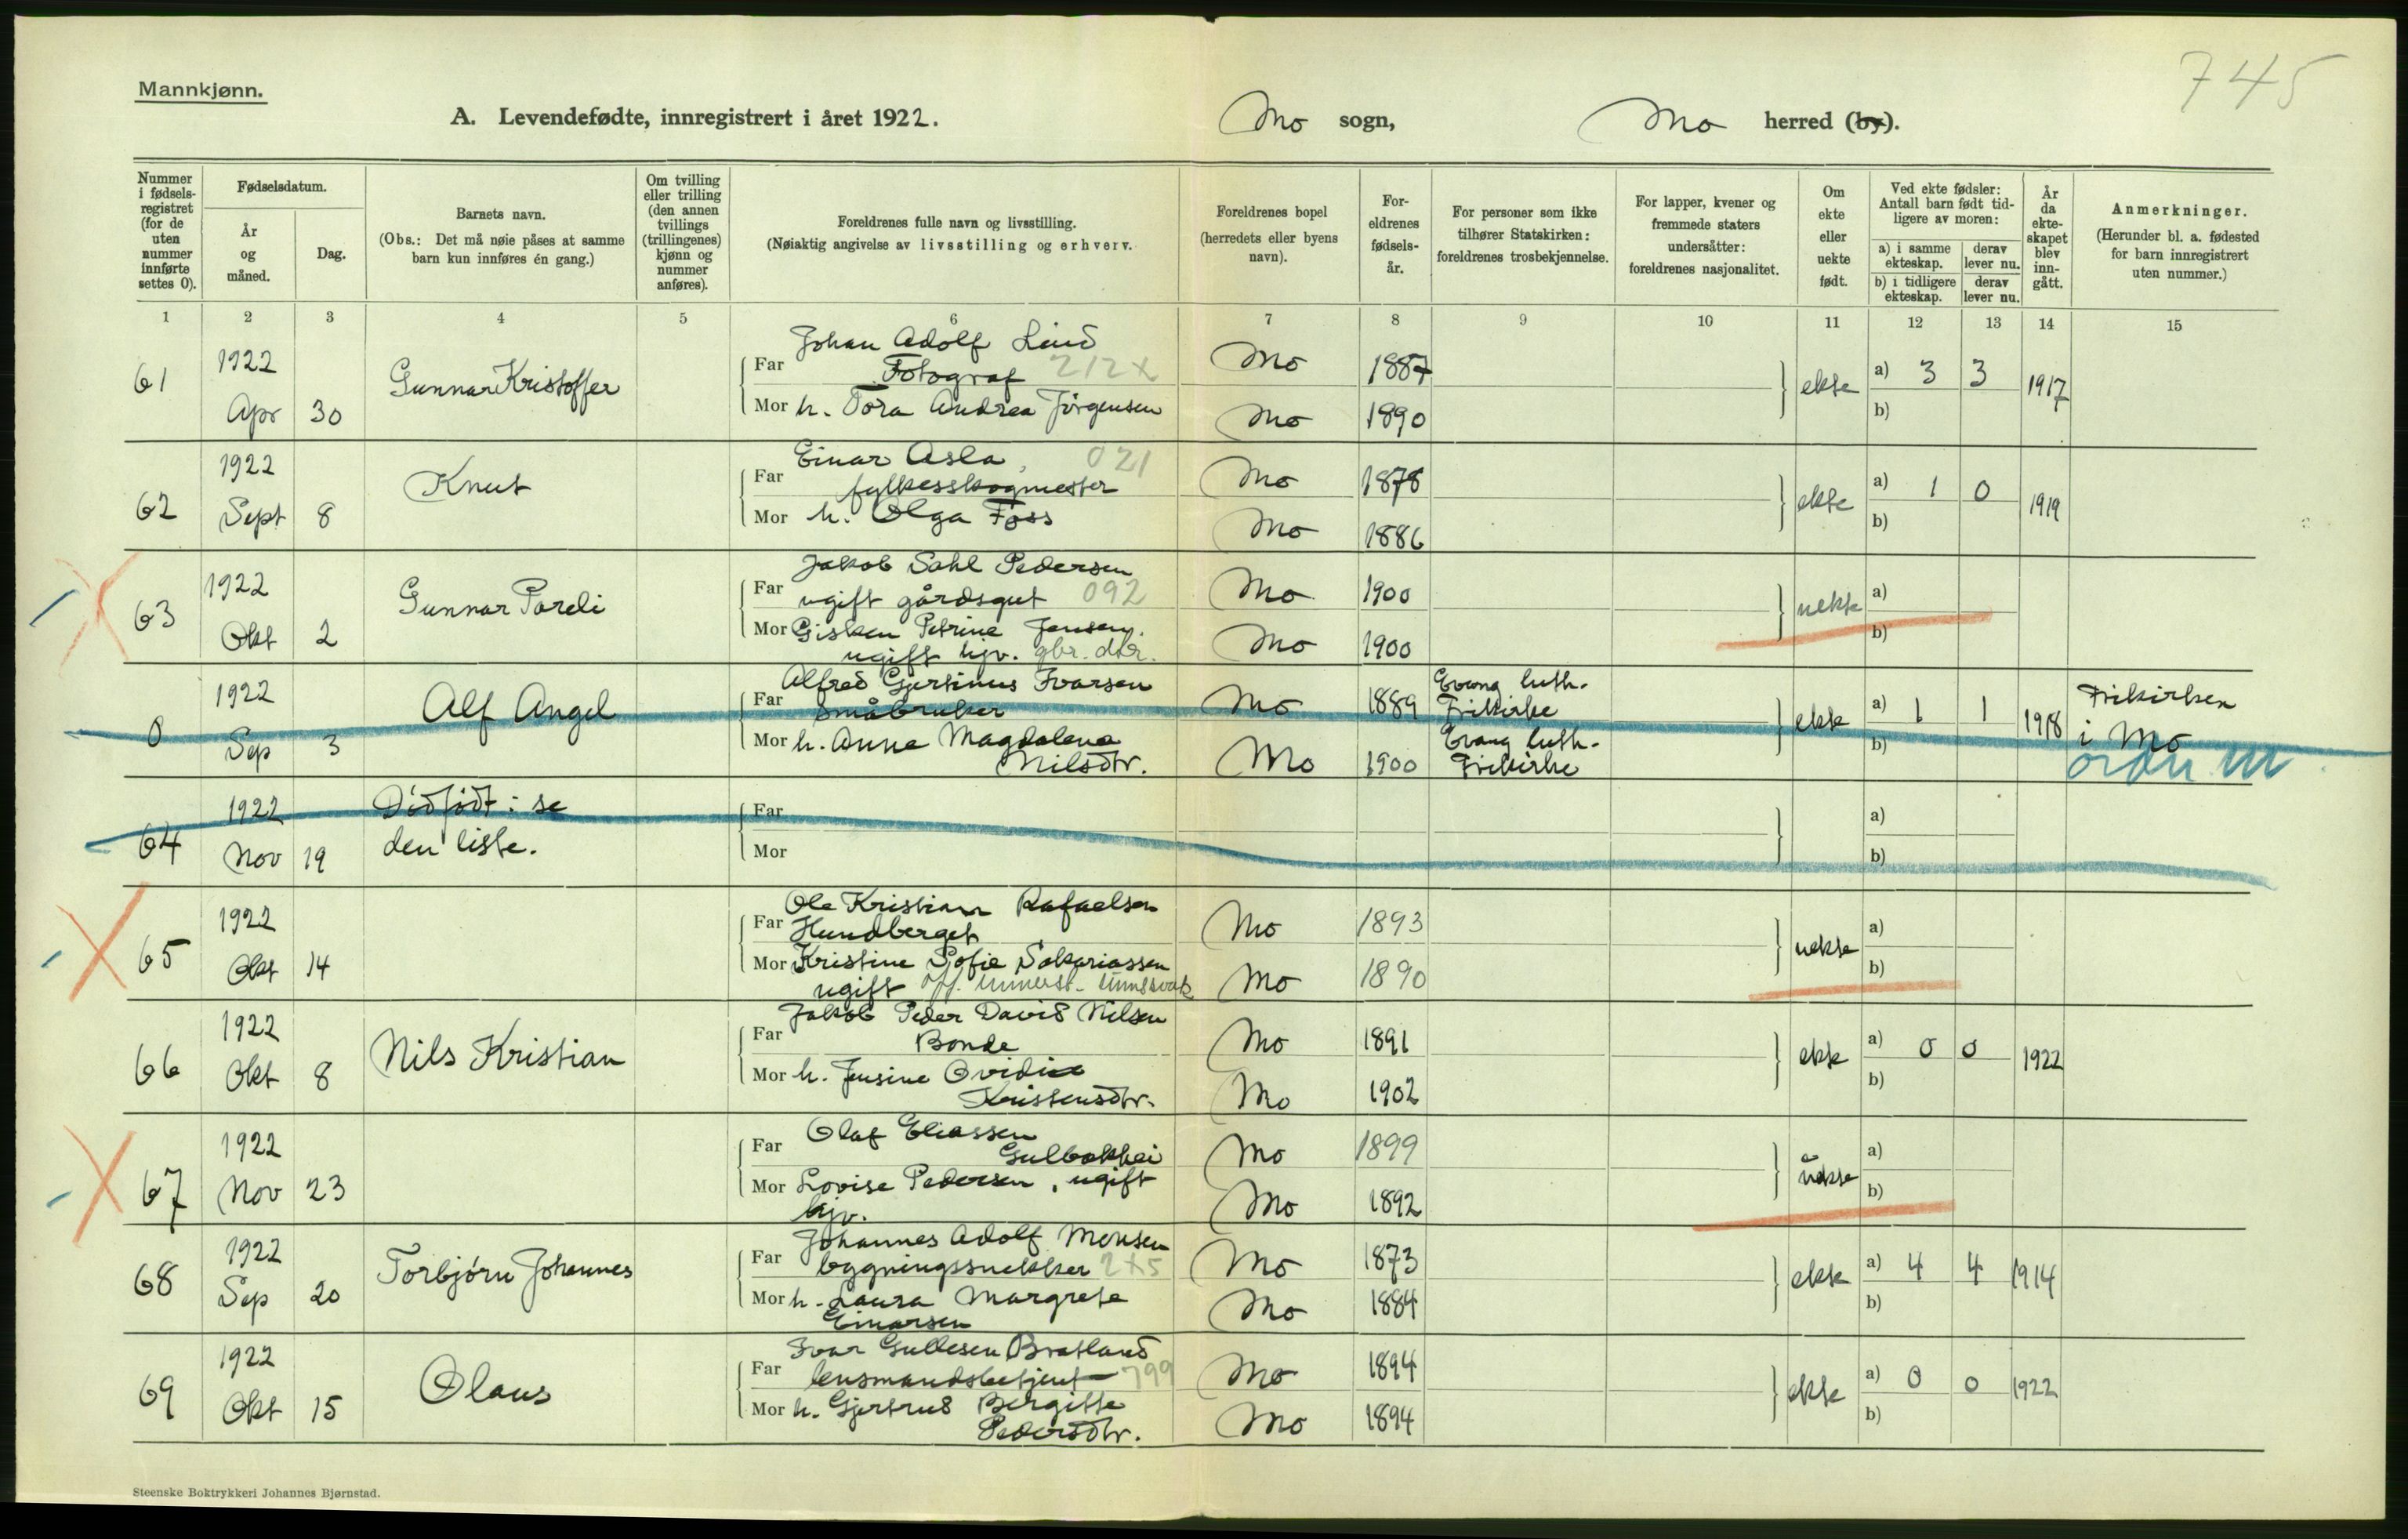 745
Mannkjønn.
A. Levendefødte, innregistrert i året 1922.
Mo sogn,
Mo herred (by).
Nummer i fødsels-registret (for de uten nummer innførte settes 0).
Fødselsdatum.
År og måned.
Dag.
Barnets navn.
(Obs.: Det må nøie påses at samme barn kun innføres én gang.)
Om tvilling eller trilling (den annen tvillings (trillingenes) kjønn og nummer anføres).
Foreldrenes fulle navn og livsstilling.
(Nøiaktig angivelse av livsstilling og erhverv.
Foreldrenes bopel (herredets eller byens navn).
For-eldrenes fødsels-år.
For personer som ikke tilhører Statskirken: foreldrenes trosbekjennelse.
For lapper, kvener og fremmede staters undersåtter: foreldrenes nasjonalitet.
Om ekte eller uekte født.
Ved ekte fødsler: Antall barn født tid-ligere av moren:
a) i samme ekteskap.
derav lever nu.
b) i tidligere ekteskap.
derav lever nu.
År da ekte-skapet blev inn-gått.
Anmerkninger.
(Herunder bl. a. fødested for barn innregistrert uten nummer.)
1 2 3 4 5 6 7 8 9 10 11 12 13 14 15
61
1922
Apr 30
Gunnar Kristoffer
Johan Adolf Lind
Far Fotograf 212x
Mor h. Tora Andrea Jörgensen
Mo 1887
Mo 1890
ekte
a) 3 3
b)
1917
62
1922
Sept 8
Knut
Einar Asla, 021
Far fylkesskogmester
Mor h. Olga Foss
Mo 1878
Mo 1886
ekte
a) 1 0
b)
1919
63
1922
Okt 2
Gunnar Pareli
Jakob Dahl Pedersen
Far ugift gårdsgut 092
Mor Gisken Petrine Jensen.
ugift hjv. gbr. dtr.
Mo 1900
Mo 1900
uekte
a)
b)
0
1922
Sep 3
Alf Angel
Alfred Gjertinus Ivarsen
Far Småbruker
Mor h. Anna Magdalena
Nilsdtr.
Mo 1889
Mo 1900
Evang luth.
Frikirke
Evang luth.
Frikirke
ekte
a) 1 1
b)
1918
Frikirken
i Mo
64
1922
Nov 19
Dödfödt: se
den liste.
Far
Mor
a)
b)
65
1922
Okt 14
Ole Kristian Rafaelsen
Far Hundberget
Mor Kristine Sofie Sakariassen
ugift
Mo 1893
Mo 1890
uekte
a)
b)
66
1922
Okt 8
Nils Kristian
Jakob Peder David Nilsen
Far Bonde
Mor h. Jensine Ovidia
Kristensdtr.
Mo 1891
Mo 1902
ekte
a) 0 0
b)
1922
67
1922
Nov 23
Olaf Eliassen
Far Gulbakhei
Mor Lovise Pedersen, ugift
hjv.
Mo 1899
Mo 1892
uekte
a)
b)
68
1922
Sep 20
Torbjörn Johannes
Johannes Adolf Monsen
Far bygningssnekker 2x5
Mor h. Laura Margrete
Einarsen
Mo 1873
Mo 1884
ekte
a) 4 4
b)
1914
69
1922
Okt 15
Olaus
Ivar Gullesen Bratland
Far lensmandsbetjent 799
Mor h. Gjertrud Bergitte
Pedersdtr.
Mo 1894
Mo 1894
ekte
a) 0 0
b)
1922
Steenske Boktrykkeri Johannes Bjørnstad.